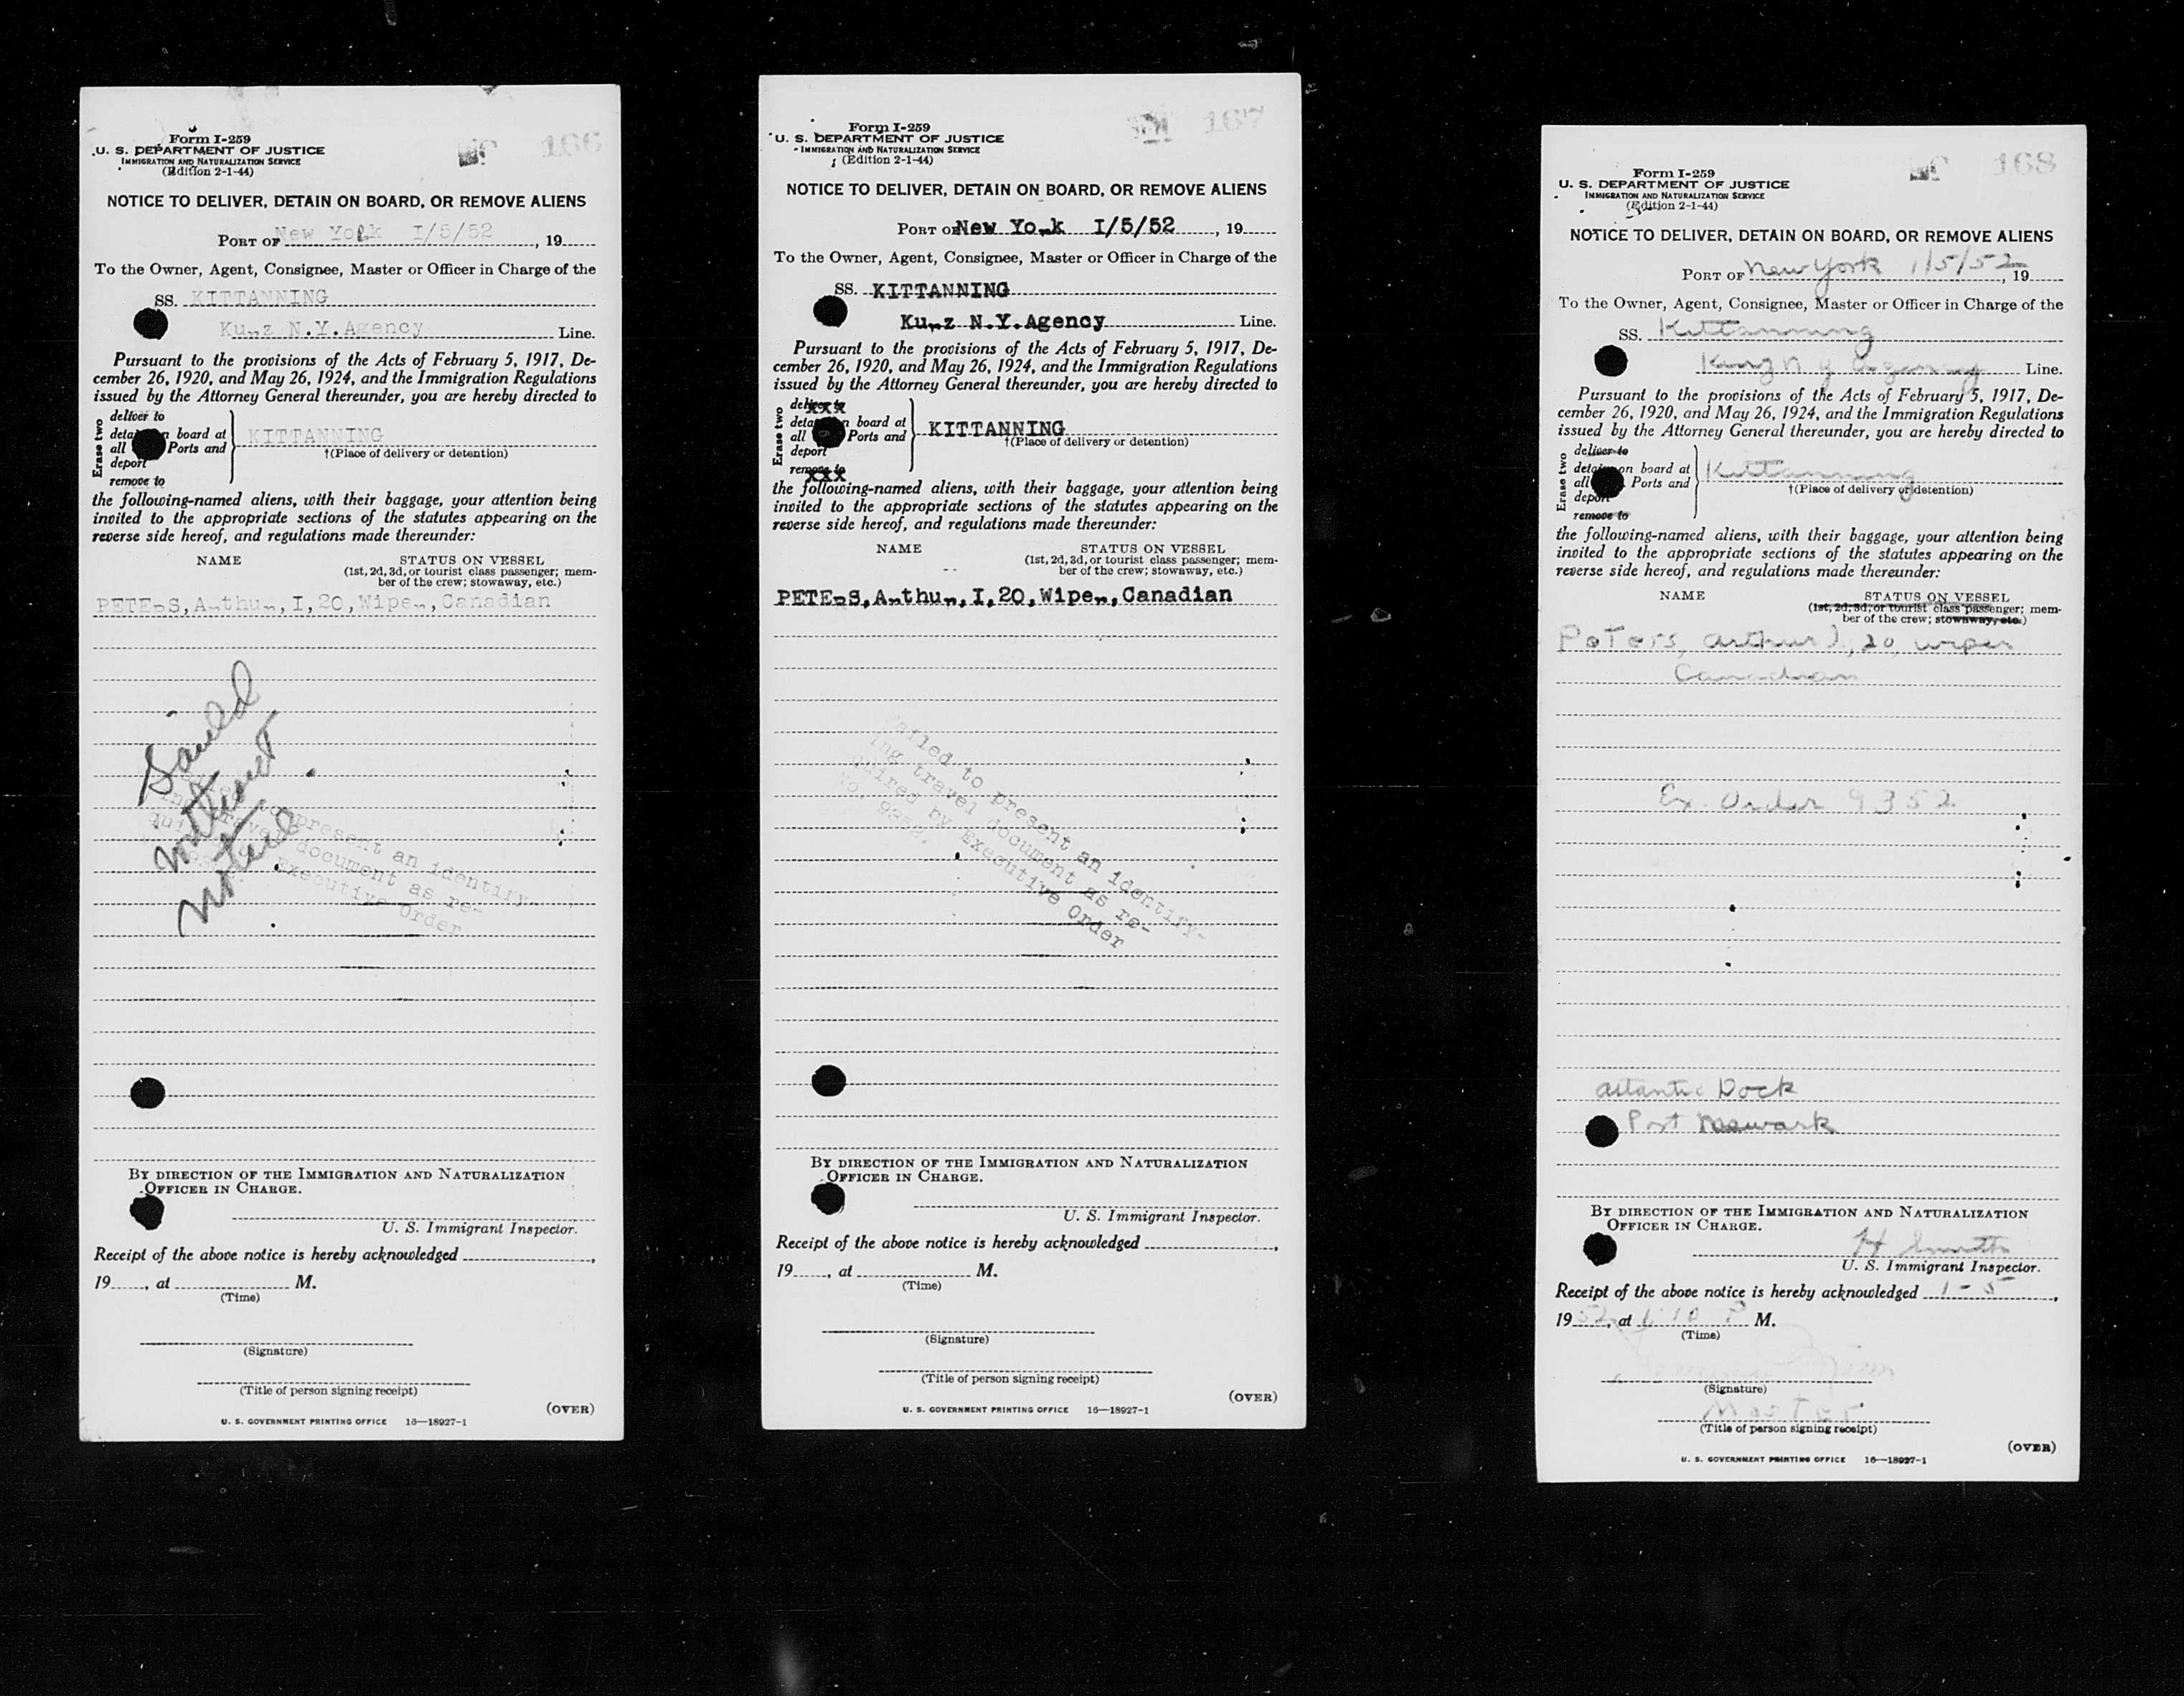 Form I-259
U. S. DEPARTMENT OF JUSTICE
IMMIGRATION AND NATURALIZATION SERVICE
(Edition 2-1-44)
166
NOTICE TO DELIVER, DETAIN ON BOARD, OR REMOVE ALIENS
PORT OF New York I/5/52, 19
To the Owner, Agent, Consignee, Master or Officer in Charge of the
SS. KITTANNING
N.Y.Agency Line.
Pursuant to the provisions of the Acts of February 5, 1917, De-
cember 26, 1920, and May 26, 1924, and the Immigration Regulations
issued by the Attorney General thereunder, you are hereby directed to
Erase two
deliver to
detain on board at
all Ports and
deport
remove to
KITTANNING
†(Place of delivery or detention)
the following-named aliens, with their baggage, your attention being
invited to the appropriate sections of the statutes appearing on the
reverse side hereof, and regulations made thereunder:
NAME STATUS ON VESSEL
(1st, 2d, 3d, or tourist class passenger; mem-
ber of the crew; stowaway, etc.)
PETERS, Arthur, I, 20, Wiper, Canadian
Sailed
without
present an identify-
travel document as re-
Executive Order
BY DIRECTION OF THE IMMIGRATION AND NATURALIZATION
OFFICER IN CHARGE.
U. S. Immigrant Inspector.
Receipt of the above notice is hereby acknowledged ,
19 , at M.
(Time)
(Signature)
(Title of person signing receipt)
(OVER)
U. S. GOVERNMENT PRINTING OFFICE 16—18927-1
Form I-259
U. S. DEPARTMENT OF JUSTICE
IMMIGRATION AND NATURALIZATION SERVICE
(Edition 2-1-44)
167
NOTICE TO DELIVER, DETAIN ON BOARD, OR REMOVE ALIENS
PORT OF New York I/5/52, 19
To the Owner, Agent, Consignee, Master or Officer in Charge of the
SS. KITTANNING
N.Y.Agency Line.
Pursuant to the provisions of the Acts of February 5, 1917, De-
cember 26, 1920, and May 26, 1924, and the Immigration Regulations
issued by the Attorney General thereunder, you are hereby directed to
Erase two
deliver to xxx
detain on board at
all Ports and
deport
remove to xxx
KITTANNING
†(Place of delivery or detention)
the following-named aliens, with their baggage, your attention being
invited to the appropriate sections of the statutes appearing on the
reverse side hereof, and regulations made thereunder:
NAME STATUS ON VESSEL
(1st, 2d, 3d, or tourist class passenger; mem-
ber of the crew; stowaway, etc.)
PETERS, Arthur, I, 20, Wiper, Canadian
Failed to present an identify-
ing travel document as re-
quired by Executive Order
No. 9352.
BY DIRECTION OF THE IMMIGRATION AND NATURALIZATION
OFFICER IN CHARGE.
U. S. Immigrant Inspector.
Receipt of the above notice is hereby acknowledged ,
19 , at M.
(Time)
(Signature)
(Title of person signing receipt)
(OVER)
U. S. GOVERNMENT PRINTING OFFICE 16—18927-1
Form I-259
U. S. DEPARTMENT OF JUSTICE
IMMIGRATION AND NATURALIZATION SERVICE
(Edition 2-1-44)
168
NOTICE TO DELIVER, DETAIN ON BOARD, OR REMOVE ALIENS
PORT OF New York 1/5/52, 19
To the Owner, Agent, Consignee, Master or Officer in Charge of the
SS. Kittanning
N Y Agency Line.
Pursuant to the provisions of the Acts of February 5, 1917, De-
cember 26, 1920, and May 26, 1924, and the Immigration Regulations
issued by the Attorney General thereunder, you are hereby directed to
Erase two
deliver to
detain on board at
all Ports and
deport
remove to
Kittanning
†(Place of delivery or detention)
the following-named aliens, with their baggage, your attention being
invited to the appropriate sections of the statutes appearing on the
reverse side hereof, and regulations made thereunder:
NAME STATUS ON VESSEL
(1st, 2d, 3d, or tourist class passenger; mem-
ber of the crew; stowaway, etc.)
Peters, Arthur I., 20, wiper
Canadian
Ex. Order 9352
Atlantic Dock
Port Newark
BY DIRECTION OF THE IMMIGRATION AND NATURALIZATION
OFFICER IN CHARGE.
H
U. S. Immigrant Inspector.
Receipt of the above notice is hereby acknowledged 1-5,
1952, at 1:10 P M.
(Time)
(Signature)
Master
(Title of person signing receipt)
(OVER)
U. S. GOVERNMENT PRINTING OFFICE 16—18927-1